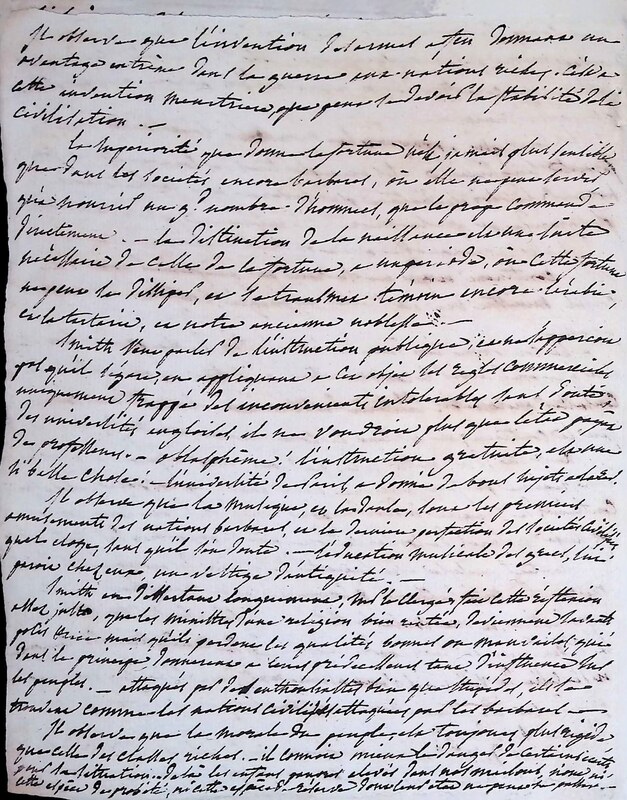 Il observe que l'invention des armes à feu donnera un
avantage extrême dans la guerre aux nations riches. C'est à
cette invention meurtrière, que peut se devoir la stabilité de la
civilisation. —
la supériorité que donne la fortune n'est jamais plus sensible
que dans les sociétés encore barbares, où elle ne peut servir
qu'à nourrir un gd nombre d'hommes, que le propre commande
directement. — la distinction de la naissance est une suite
nécessaire de celle de la fortune, à un période, où cette fortune
ne peut se dissiper, et se transmet. témoin encore l'Arabie,
et la tartarie, et notre ancienne noblesse. —
Smith veut parler de l'instruction publique, et ne s'apperçoit
pas qu'il s'égare, en appliquant à cet objet les regles commerciales
uniquement frappé des inconvenients intolerables sans doute
des universités angloises, il ne voudroit plus que l'état payât
des professeurs. — blasphême! l'instruction gratuite, est une
si belle chose. — l'université de Paris, a donné de bons sujets
Il observe que la musique, et la danse, sont les premiers
amusements des nations barbares, et la derniere perfection des sociétés civilisées
quel eloge, sans qu'il s'en doute. — l'education musicale des grecs, lui
paroit chez eux un vestige d'antiquité. —
Smith en dissertant longuement, sur le Clergé, fait cette réflexion
assez juste, que les ministres d'une religion bien rentée, deviennent savants
polis mais qu'ils perdent les qualités bonnes ou mauvaises, qui
dans le principe donnerent à leurs prédecesseurs tant d'influence sur
les peuples. — attaqués par des enthousiastes bien que stupides, ils se
trouvent comme les nations civilisées attaquées par les barbares —
Il observe que la morale du peuple, est toujours plus rigide
que celle des classes riches. — il connoit mieux le danger de certains écarts
pour sa situation. — de là les enfants pauvres élevés dans nos maisons, n'ont ni
cette espèce de probité, ni cette espèce de réserve